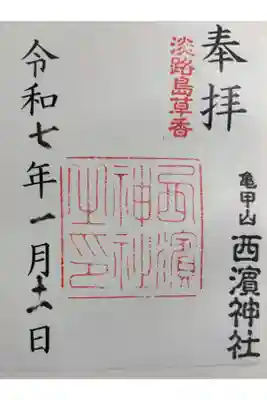 奉拝
亀甲山 西濱神社
淡路島草香
西濱
神社
之印
令和七年一月十一日